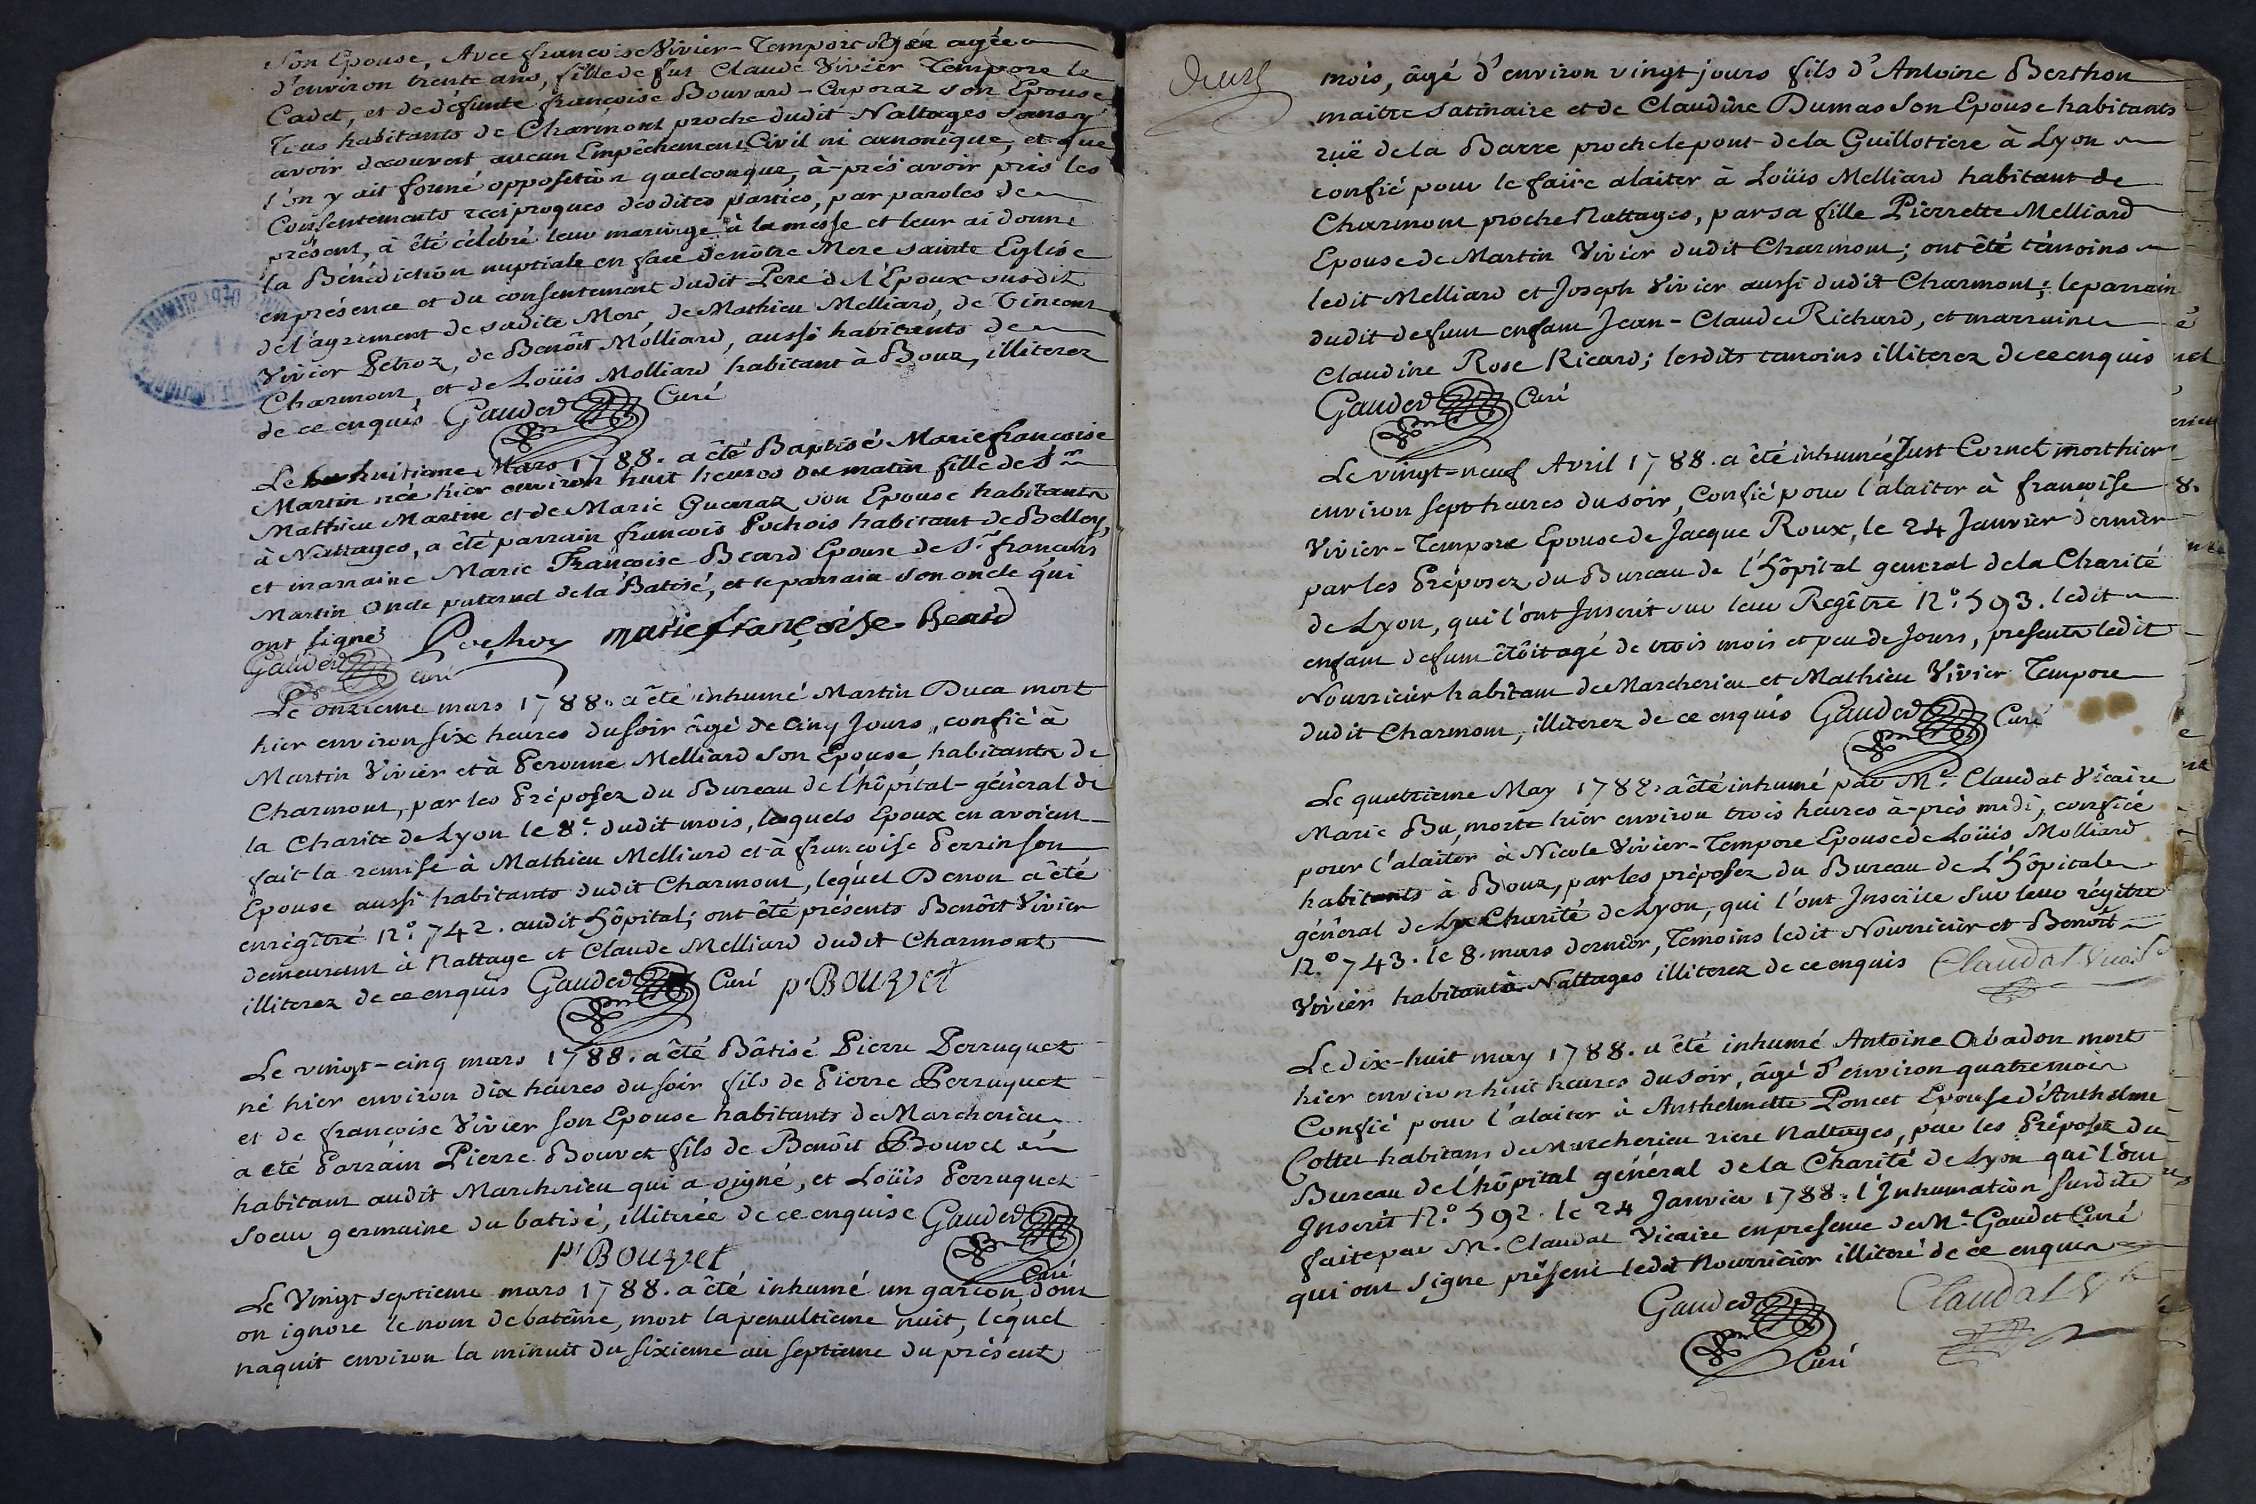 Son Epouse, Avec françoise Vivier-Tempore agée
d'environ trente ans, fille de fut Claude Vivier Tempore le
Cadet, et de défunte françoise Bouvard-Corporaz son Epouse
Tous habitants de Charmont proche dudit Nattages Sans y
avoir decouvert aucun Empêchement Civil ni canonique, et que
l'on y ait formé opposition quelconque, à-prés avoir pris les
Consentements réciproques desdites parties, par paroles de
présent, à été célébré leur mariage à la messe et leur ai donné
la Bénédiction nuptiale en face de nôtre Mere sainte Eglise
en présence et du consentement dudit Pere de l'Epoux susdit
de l'agrement de sadite Mere, de Mathieu Melliard, de Vincent
Vivier Petroz, de Benoît Molliard, aussi habitants de
Charmont, et de Loüis Molliard habitant à Bouz, illiterez
de ce enquis Gaudet Curé
Le huitieme Mars 1788. a été Baptisé Marie françoise
Martin née hier environ huit heures du matin fille de Sr
Mathieu Martin et de Marie Guerraz son Epouse habitants
à Nattages, a été parrain françois Pochois habitant de Belley,
et marraine Marie Françoise Beard Epouse de Sr. françois
Martin Oncle paternel de la Batisé, et le parrain son oncle qui
ont signé Pochoy marie françoise Beard
Gaudet curé
Le onzieme mars 1788. a été inhumé Martin Duca mort
hier environ six heures du soir âgé de Cinq Jours, confié à
Martin Vivier et à Peronne Melliard son Epouse, habitants de
Charmont, par les Préposez du Bureau de l'hôpital-général de
la Charité de Lyon le 8e. dudit mois, lesquels Epoux en avoient
fait la remise à Mathieu Melliard et à françoise Perrin son
Epouse aussi habitants dudit Charmont, lequel Denon a été
enrégîtré N.o 742. audit hôpital; ont été présents Benôit Vivier
demeurant à Nattage et Claude Melliard dudit Charmont
illiterez de ce enquis Gaudet Curé p. BOUVET
Le vingt-cinq mars 1788. a été Bâtisé Pierre Perruquet
né hier environ dix heures du soir fils de Pierre Perruquet
et de françoise Vivier son Epouse habitants de Marcherieu
a été Parrain Pierre Bouvet fils de Benôit Bouvet
habitant audit Marcherieu qui a signé, et Loüis Perruquet
soeur germaine du batisé, illiterée de ce enquise Gaudet
pr BOUVET Curé
Le Vingt septieme mars 1788. a été inhumé un garçon, dont
on ignore le nom de batême, mort la penultieme nuit, lequel
naquit environ la minuit du sixieme au septieme du présent
deux
mois, âgé d'environ vingt jours fils d'Antoine Berthon
maitre satinaire et de Claudine Dumas son Epouse habitants
ruë de la Barre proche le pont de la Guillotiere à Lyon
confié pour le faire alaiter à Loüis Melliard habitant de
Charmont proche Nattages, par sa fille Pierrette Melliard
Epouse de Martin Vivier dudit Charmont; ont été témoins
ledit Melliard et Joseph Vivier aussi dudit Charmont; le parrain
dudit defunt enfant Jean-Claude Richard, et marraine
Claudine Rose Ricard; lesdits temoins illiterez de ce enquis
Gaudet Curé
Le vingt-neuf Avril 1788. a été inhumé Just Cornet mort hier
environ sept heures du soir, Confié pour l'alaiter à françoise
Vivier-Tempore Epouse de Jacque Roux, le 24 Janvier dernier
par les Préposez du Bureau de l'hôpital general de la Charité
de Lyon, qui l'ont Inscrit sur leur Regître N.o 593. ledit
enfant defunt étoit agé de trois mois et peu de Jours, presents ledit
Nourricier habitant de Marcherieu et Mathieu Vivier Tempore
dudit Charmont, illiterez de ce enquis Gaudet Curé
Le quatrieme May 1788. a été inhumé par Mr. Claudat Vicaire
Marie Bu, morte hier environ trois heures à-près midi, confiée
pour l'alaiter à Nicole Vivier-Tempore Epouse de Loüis Molliard
habitants à Bouz, par les préposez du Bureau de L'hôpital
général de La Charité de Lyon, qui l'ont Inscrite sur leur régitre
N.o 743. le 8. mars dernier, Temoins ledit Nourricier et Benoît
Vivier habitant à Nattages illiterez de ce enquis Claudat Vicaire
Le dix-huit may 1788. a été inhumé Antoine Abadon mort
hier environ huit heures du soir, âgé d'environ quatre mois
Confié pour l'alaiter à Anthelmette Poncet Epouse d'Anthelme
Cottet habitans de Marcherieu riere Nattages, par les Préposez du
Bureau de l'hôpital général de la Charité de Lyon qui l'ont
Inscrit N.o 592. le 24 Janvier 1788. l'Inhumation susdite
faite par Mr. Claudat Vicaire en presence de Mr. Gaudet Curé
qui ont signe présent ledit Nourricier illiteré de ce enquis
Gaudet Curé Claudat Vre